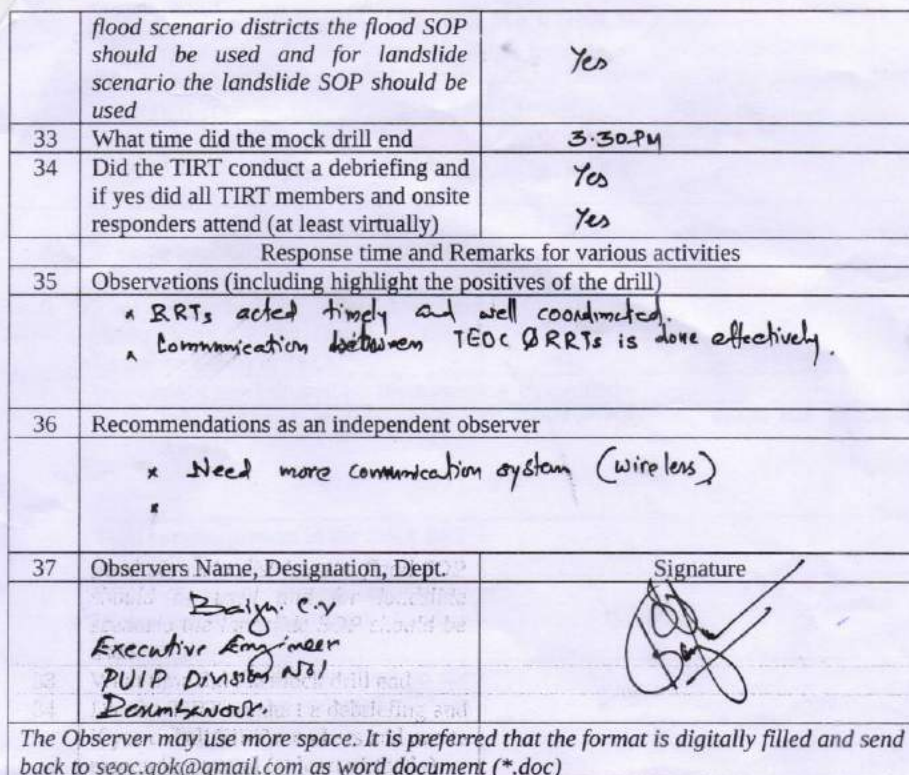 flood scenario districts the flood SOP
should be used and for landslide
scenario the landslide SOP should be
used
Yes
33 What time did the mock drill end 3.30PM
34 Did the TIRT conduct a debriefing and
if yes did all TIRT members and onsite
responders attend (at least virtually)
Yes
Yes
Response time and Remarks for various activities
35 Observations (including highlight the positives of the drill)
* RRTs acted timely and well coordinated.
* Communication between TEOC & RRTs is done effectively.
36 Recommendations as an independent observer
* Need more communication system (wireless)
*
37 Observers Name, Designation, Dept. Signature
C.V
Executive Engineer
PUIP Division No 1
The Observer may use more space. It is preferred that the format is digitally filled and send
back to seoc.gok@gmail.com as word document (*.doc)